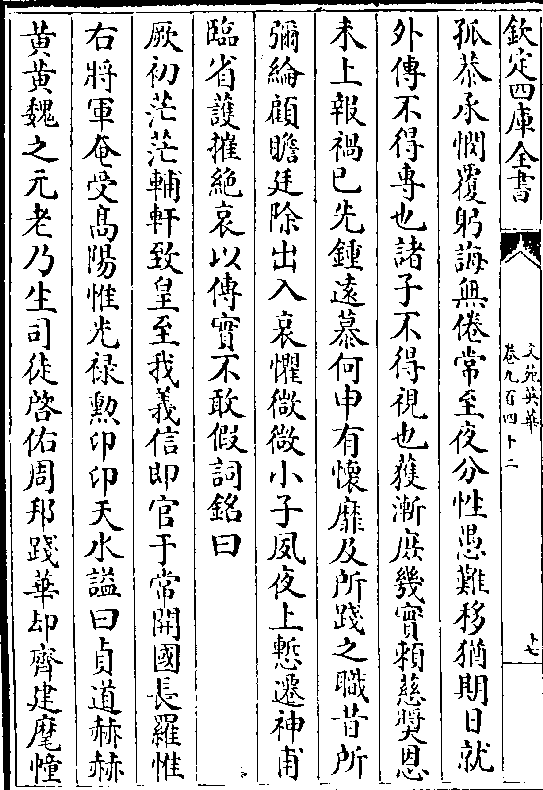 欽定四庫全書
文苑英華
卷九百四十二
十七
孤恭承憫覆躬誨無倦常至夜分性愚難移猶期日就
外傳不得專也諸子不得視也獲漸庶幾實賴慈奬恩
未上報禍已先鍾遠慕何申有懷靡及所踐之職昔所
彌綸顧瞻廷除出入哀懼微微小子夙夜上慙遷神甫
臨省護摧絶哀以傳實不敢假詞銘曰
厥初茫茫輔軒致皇至我義信即官于常開國長羅惟
右將軍奄受髙陽惟光禄勲卬卬天水謚曰貞道赫赫
黄黄魏之元老乃生司徒啓佑周邦踐華却齊建麾幢